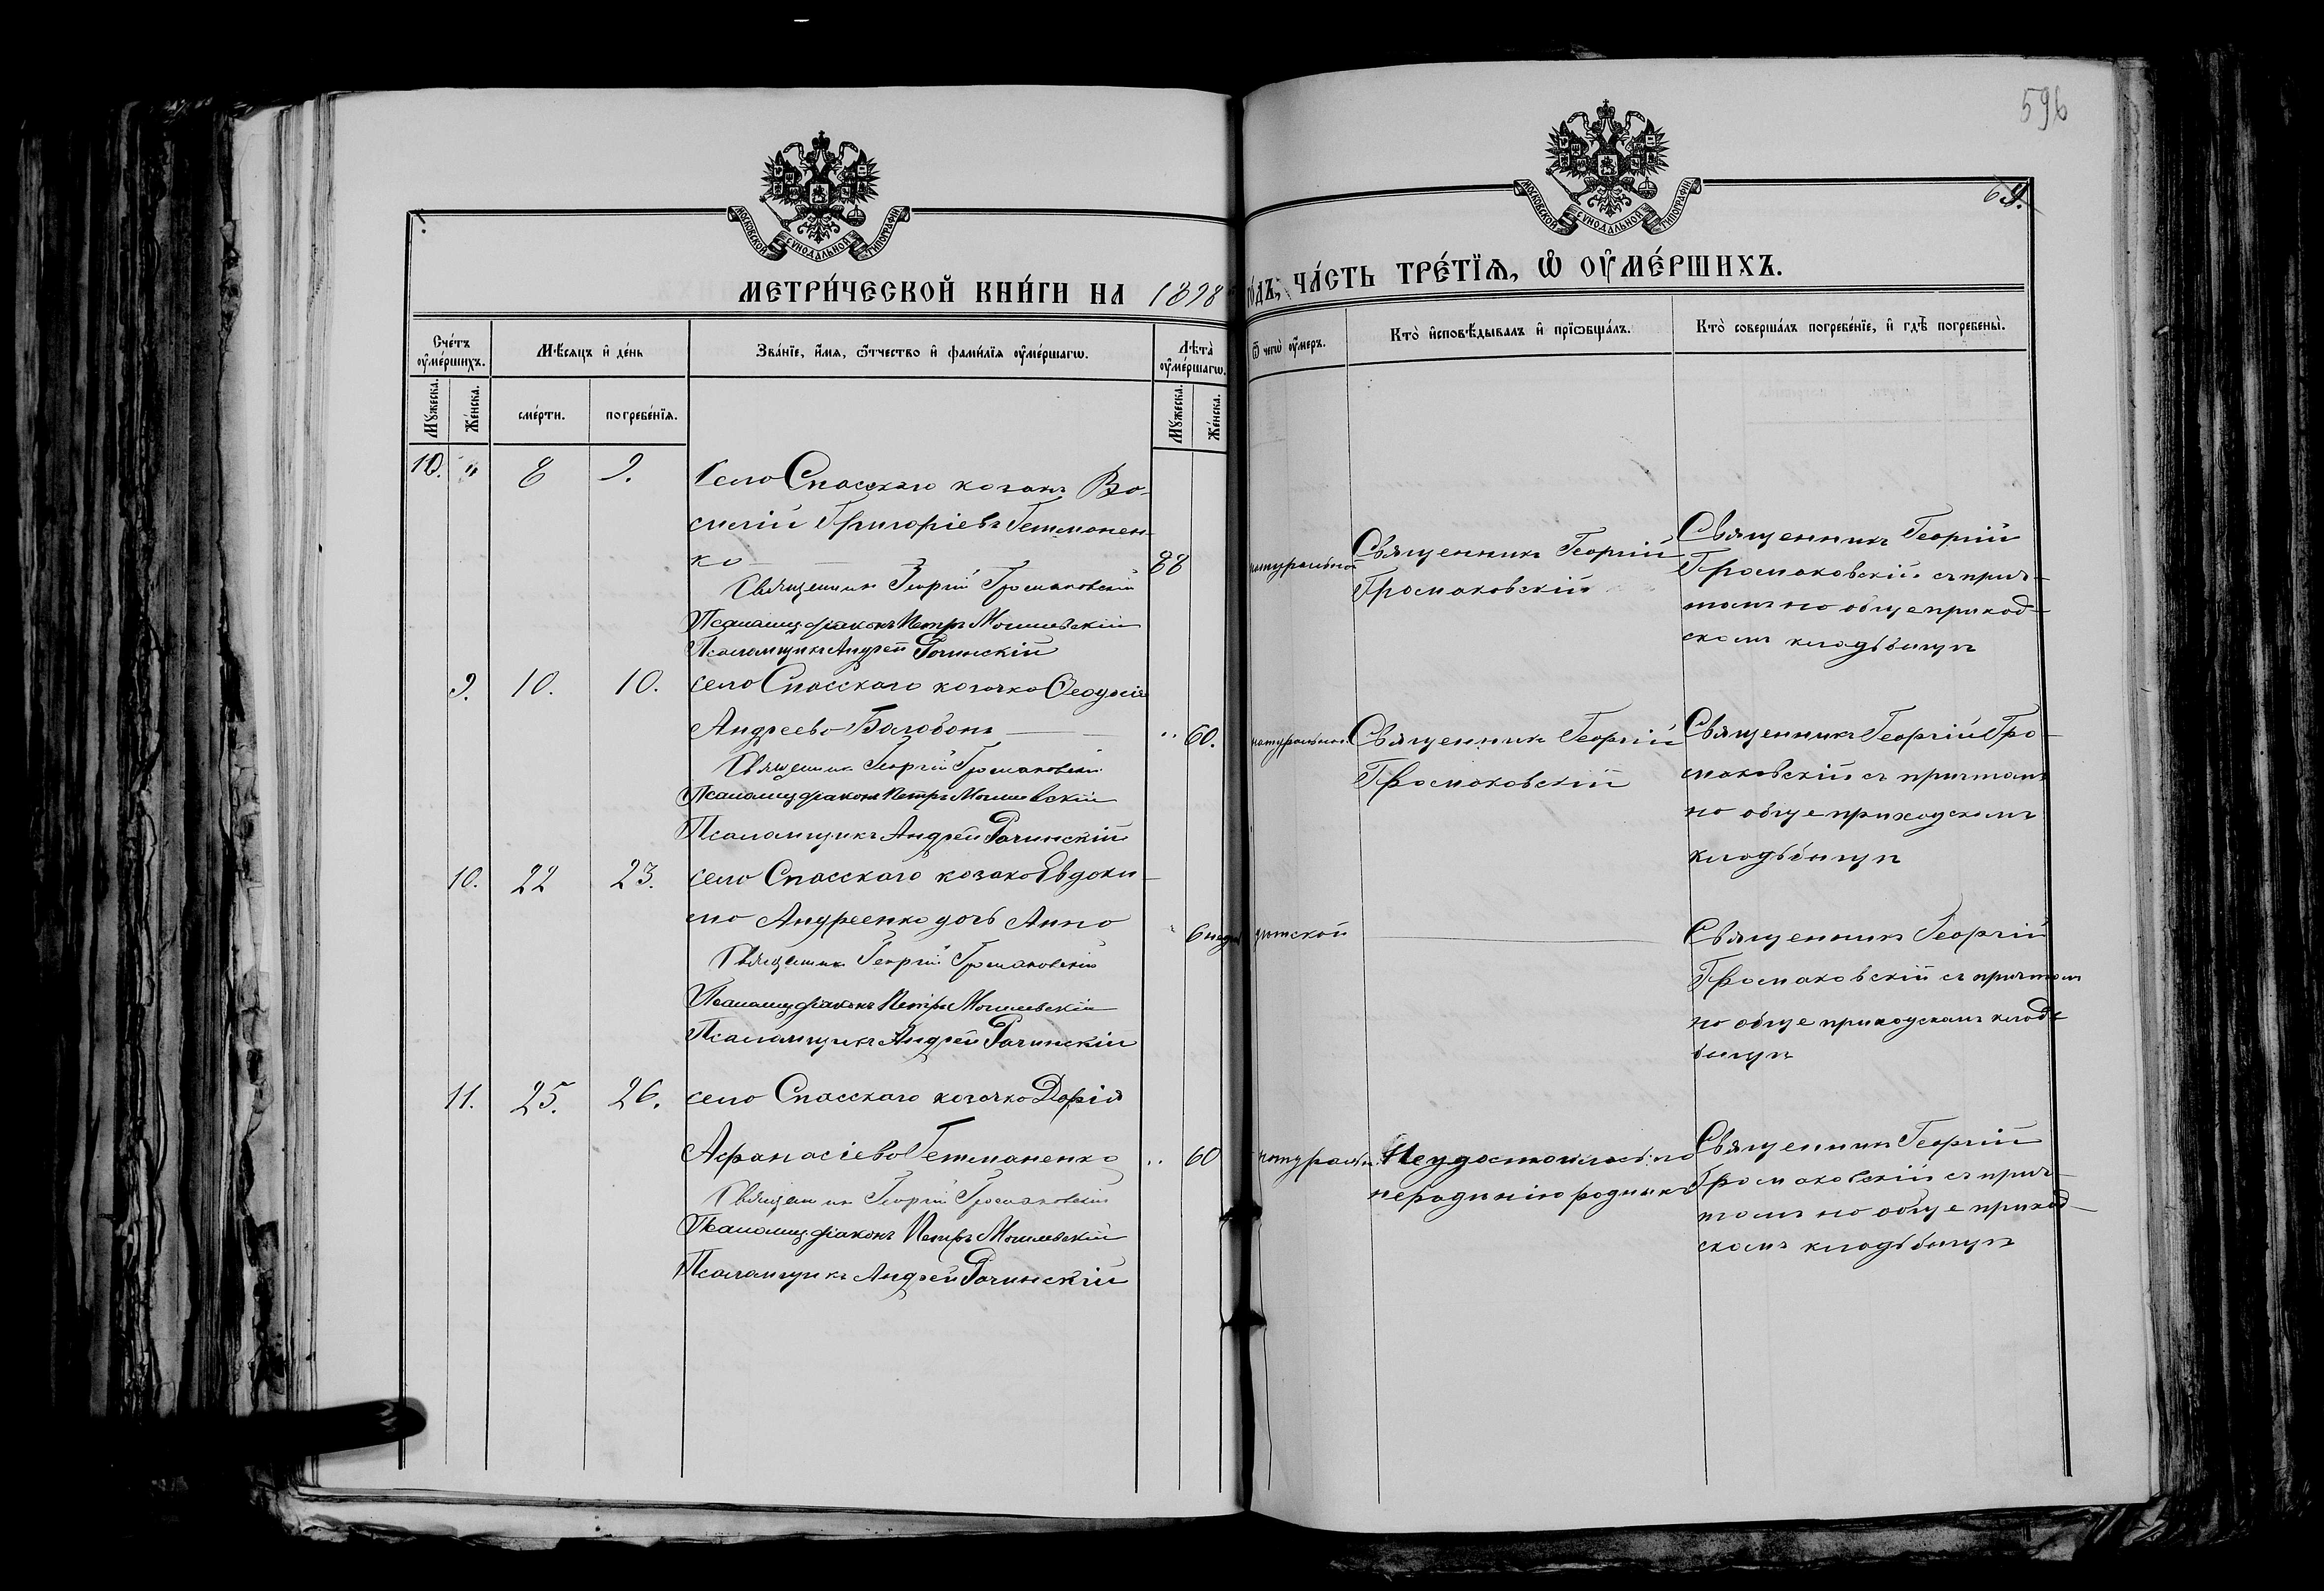 596
МОСКОВСКОЙ СѴНОДАЛЬНОЙ ТИПОГРАФІИ
МОСКОВСКОЙ СѴНОДАЛЬНОЙ ТИПОГРАФІИ
МЕТРИ́ЧЕСКОЙ КНИ́ГИ НА 1898
го́дъ, ЧА́СТЬ ТРЕ́ТЇѦ, Ѽ ОУ҆МЕ́РШИХЪ.
Сче́тъ оу҆ме́ршихъ.
Мꙋжеска.
Же́нска.
Мѣ́сяцъ и҆ де́нь
сме́рти.
погребе́нїѧ.
Зва́нїе, и҆́мѧ, ѻ҆́тчество и҆ фами́лїѧ оу҆ме́ршагѡ.
Лѣта̀ оу҆ме́ршагѡ.
Мꙋжеска.
Же́нска.
Ѿ чегѡ̀ оу҆́меръ.
Кто̀ и҆сповѣ́дывалъ и҆ прїѡбща́лъ.
Кто̀ соверша́лъ погребе́нїе, и҆ гдѣ̀ погребены̀.
10. " 8 9. Села Спасскаго козакъ Ва-
силій Григоріевъ Гетманен-
ко 88 натуральной
Священникъ Георгій Громаковскій
Псаломщ. діаконъ Петръ Могилевскій
Псаломщикъ Андрей Рачинскій
Священникъ Георгій
Громаковскій
Священникъ Георгій
Громаковскій съ прич-
томъ на общеприход-
скомъ кладбищѣ
9. 10. 10. села Спасскаго козачка Ѳеодосія
Андреева Балабанъ " 60. натуральной
Священникъ Георгій Громаковскій
Псаломщ. діаконъ Петръ Могилевскій
Псаломщикъ Андрей Рачинскій
Священникъ Георгій
Громаковскій
Священникъ Георгій Гро-
маковскій съ причтомъ
на общеприходскомъ
кладбищѣ
10. 22 23. села Спасскаго козака Евдоки-
ма Андреенка дочь Анна " 6 недѣл
Священникъ Георгій Громаковскій
Псаломщ. діаконъ Петръ Могилевскій
Псаломщикъ Андрей Рачинскій
Священникъ Георгій
Громаковскій съ причтомъ
на общеприходскомъ клад-
бищѣ
11. 25. 26. села Спасскаго козачка Дарія
Афанасіева Гетманенко " 60 натуральн.
Священникъ Георгій Громаковскій
Псаломщ. діаконъ Петръ Могилевскій
Псаломщикъ Андрей Рачинскій
Неудостоилась по
нерадинію родных
Священникъ Георгій
Громаковскій съ прич-
томъ на общеприход-
скомъ кладбищѣ